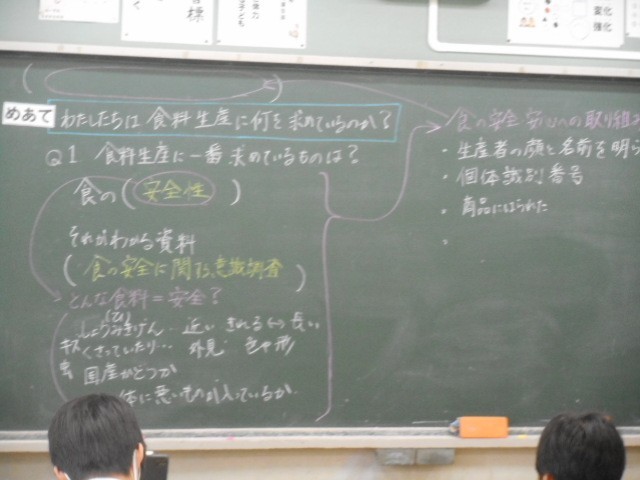 標
体力
子ども
変化
強化
めあて わたしたちは食料生産に何を求めているのか？
Q1 食料生産に一番求めているものは？
食の（安全性）
それがわかる資料
（食の安全に関する意識調査）
どんな食料＝安全？
しょうみきげん‥近い きれる 長い
（ひ）
キズ くさっていたり… 外見 色や形
虫 国産かどうか
体に悪いものが入っているか
食の安全安心への取り組み
・生産者の顔と名前を明ら
・個体識別番号
・商品にはられた
・